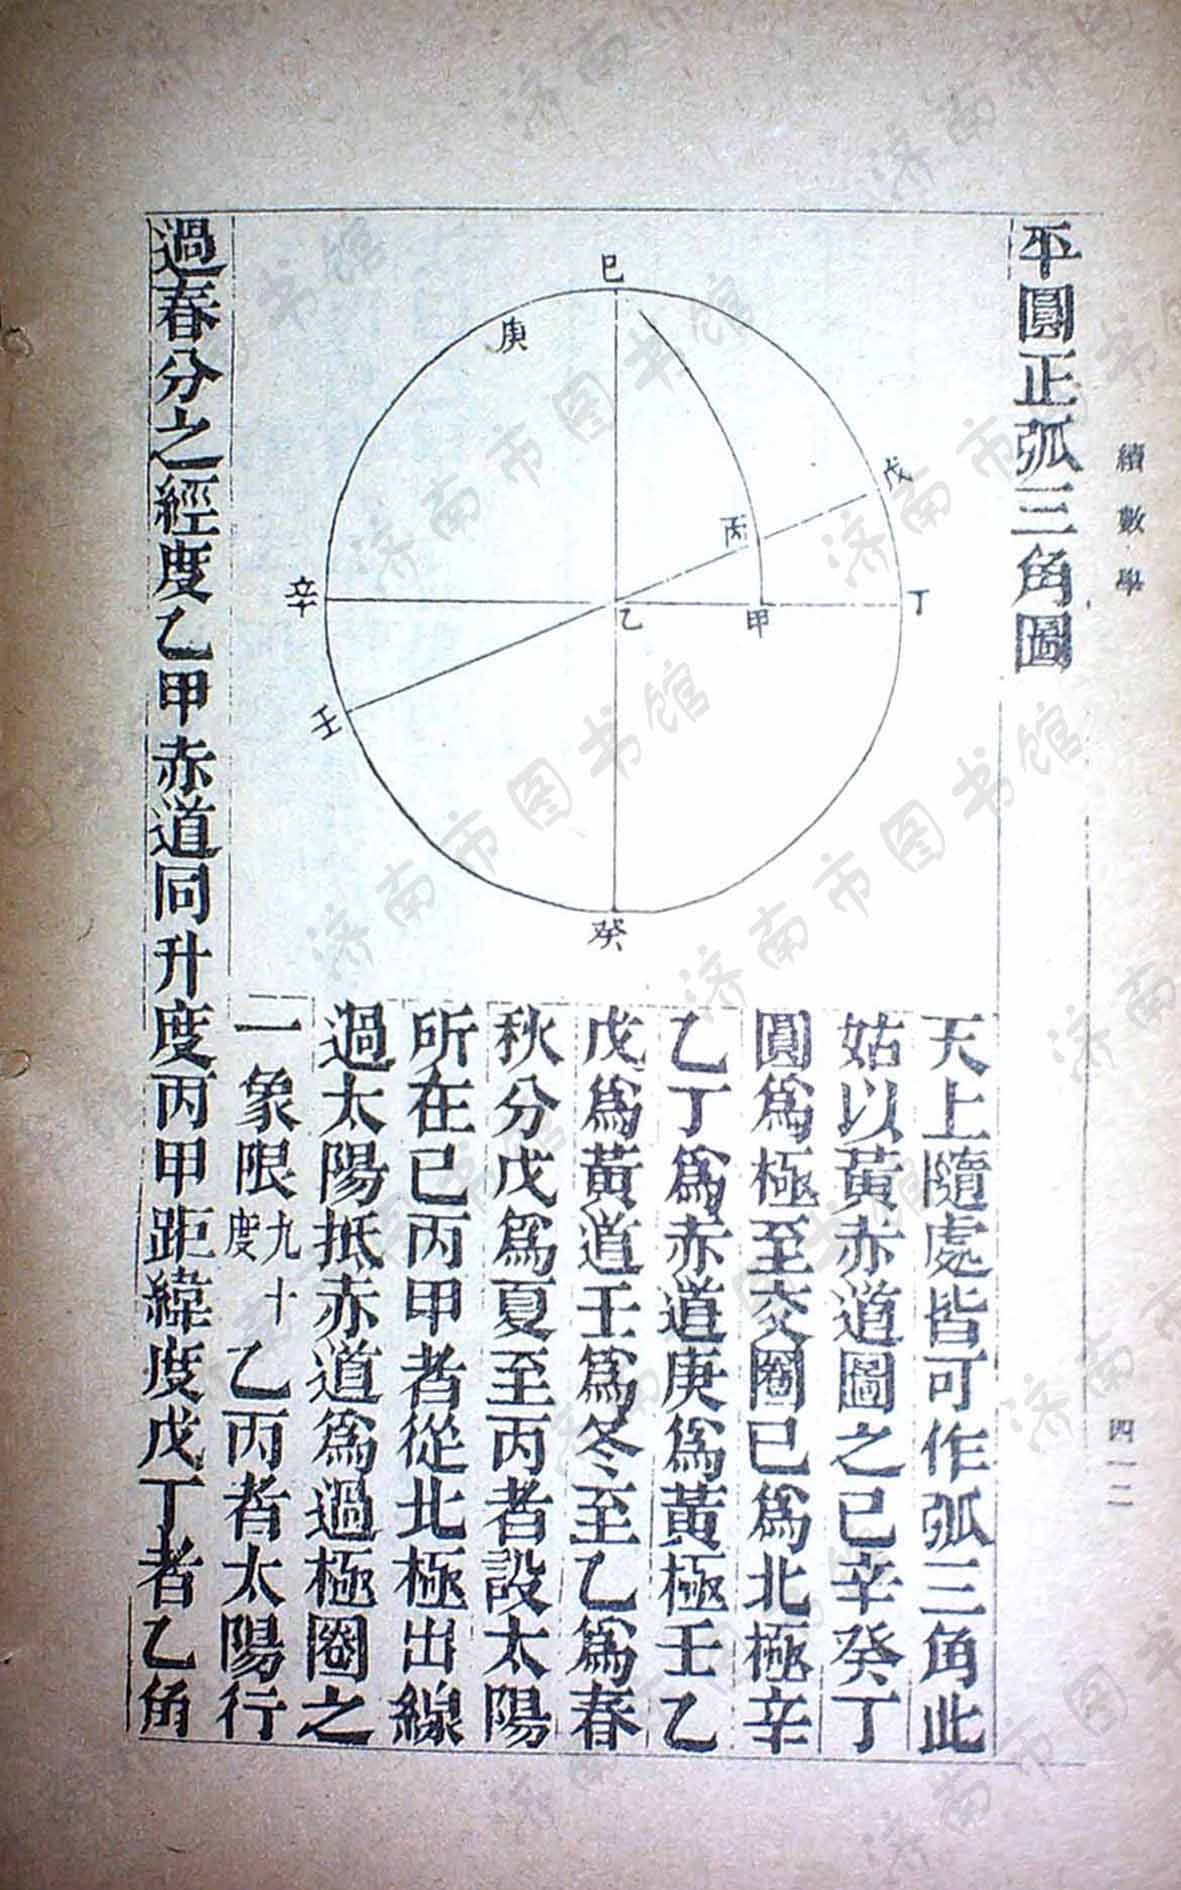 續數學
四一二
平圓正弧三角圖
巳
庚
戊
丙
辛
乙
甲
丁
壬
癸
天上隨處皆可作弧三角此
姑以黃赤道圖之巳辛癸丁
圓爲極至交圈巳爲北極辛
乙丁爲赤道庚爲黃極壬乙
戊爲黃道壬爲冬至乙爲春
秋分戊爲夏至丙者設太陽
所在巳丙甲者從北極出線
過太陽抵赤道爲過極圈之
一象限九十度乙丙者太陽行
過春分之經度乙甲赤道同升度丙甲距緯度戊丁者乙角
济南市图书馆